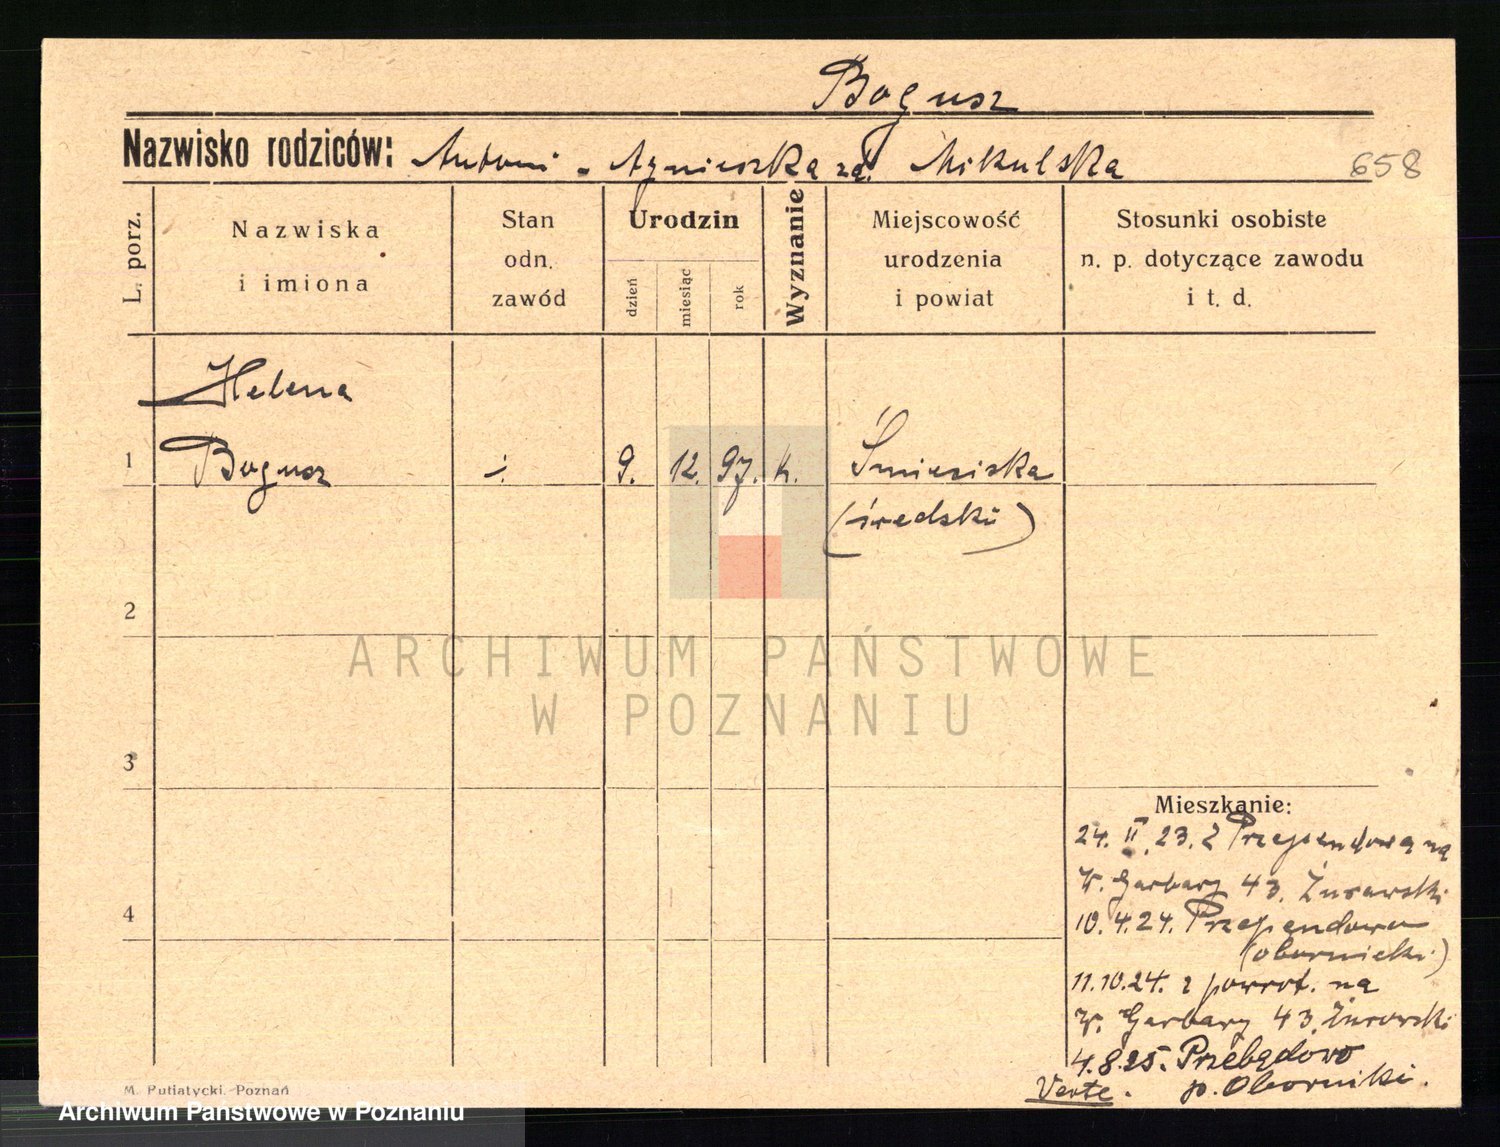 Bogusz
Nazwisko rodziców: Antoni - Agnieszka zd. Mikulska
658
L. porz.
Nazwiska
i imiona
Stan
odn.
zawód
Urodzin
dzień
miesiąc
rok
Wyznanie
Miejscowość
urodzenia
i powiat
Stosunki osobiste
n. p. dotyczące zawodu
i t. d.
Helena
1 Bogusz 9. 12. 97. k. Śmieciska
(średzki)
2
ARCHIWUM PAŃSTWOWE
W POZNANIU
3
Mieszkanie:
24. II. 23. z na
W. Garbary 43. Żurawski
4
10.4.24.
(obornicki)
11.10.24. z powrot. na
W. Garbary 43. Żurowski
4.8.25. Przebędowo
p. Oborniki.
Verte.
M. Putiatycki, Poznań
Archiwum Państwowe w Poznaniu